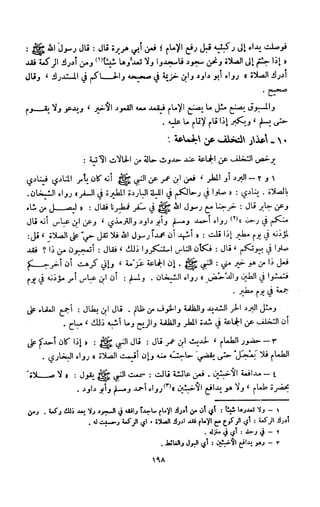 فوصلت يداه إلى ركبتيه قبل رفع الإمام ؛ فعن أبي هريرة قال : قال رسول الله ﷺ :
« إذا جئتم إلى الصلاة ونحن سجود فاسجدوا ولا تعدوها شيئاً(١) ومن أدرك الركعة فقد
أدرك الصلاة » رواه أبو داود وابن خزيمة في صحيحه والحاكم في المستدرك ، وقال
صحيح .
والمسبوق يصنع مثل ما يصنع الإمام فيقعد معه القعود الأخير ، ويدعو ولا يقوم
حتى يسلم ، ويكبر إذا قام لإتمام ما عليه .
١٠ - أعذار التخلف عن الجماعة :
يرخص التخلف عن الجماعة عند حدوث حالة من الحالات الآتية :
١ و ٢ - البرد أو المطر ، فعن ابن عمر عن النبي ﷺ أنه كان يأمر المنادي فينادي
بالصلاة . ينادي : « صلوا في رحالكم في الليلة الباردة المطيرة في السفر » رواه الشيخان .
وعن جابر قال : خرجنا مع رسول الله ﷺ في سفر فمطرنا فقال : « ليصل من شاء
منكم في رحله(٢) » رواه أحمد ومسلم وأبو داود والترمذي ، وعن ابن عباس أنه قال
لمؤذنه في يوم مطير إذا قلت : « أشهد أن محمداً رسول الله فلا تقل حي على الصلاة ، قل :
صلوا في بيوتكم » قال : فكأن الناس استنكروا ذلك ، فقال : أتعجبون من ذا ؟ فقد
فعل ذا من هو خير مني : النبي ﷺ . إن الجماعة عزمة ، وإني كرهت أن أخرجكم
فتمشوا في الطين والدحض » رواه الشيخان . ولمسلم : أن ابن عباس أمر مؤذنه في يوم
جمعة في يوم مطير .
ومثل البرد الحر الشديد والظلمة والخوف من ظالم . قال ابن بطال : أجمع العلماء على
أن التخلف عن الجماعة في شدة المطر والظلمة والريح وما أشبه ذلك ، مباح .
٣ - حضور الطعام ، لحديث ابن عمر قال : قال النبي ﷺ : « إذا كان أحدكم على
الطعام فلا يعجل حتى يقضي حاجته منه وإن أقيمت الصلاة » رواه البخاري .
٤ - مدافعة الأخبثين . فعن عائشة قالت : سمعت النبي ﷺ يقول : « لا صلاة
بحضرة طعام ، ولا هو يدافع الأخبثين(٣) » رواه أحمد ومسلم وأبو داود .
١ - ولا تعدوها شيئاً : أي أن من أدرك الإمام ساجداً وافقه في السجود ولا يعد ذلك ركعة . ومن
أدرك الركعة : أي الركوع مع الإمام فقد أدرك الصلاة ، أي الركعة وحسبت له .
٢ - في رحله : أي في منزله .
٣ - وهو يدافع الأخبثين : أي البول والغائط .
١٩٨